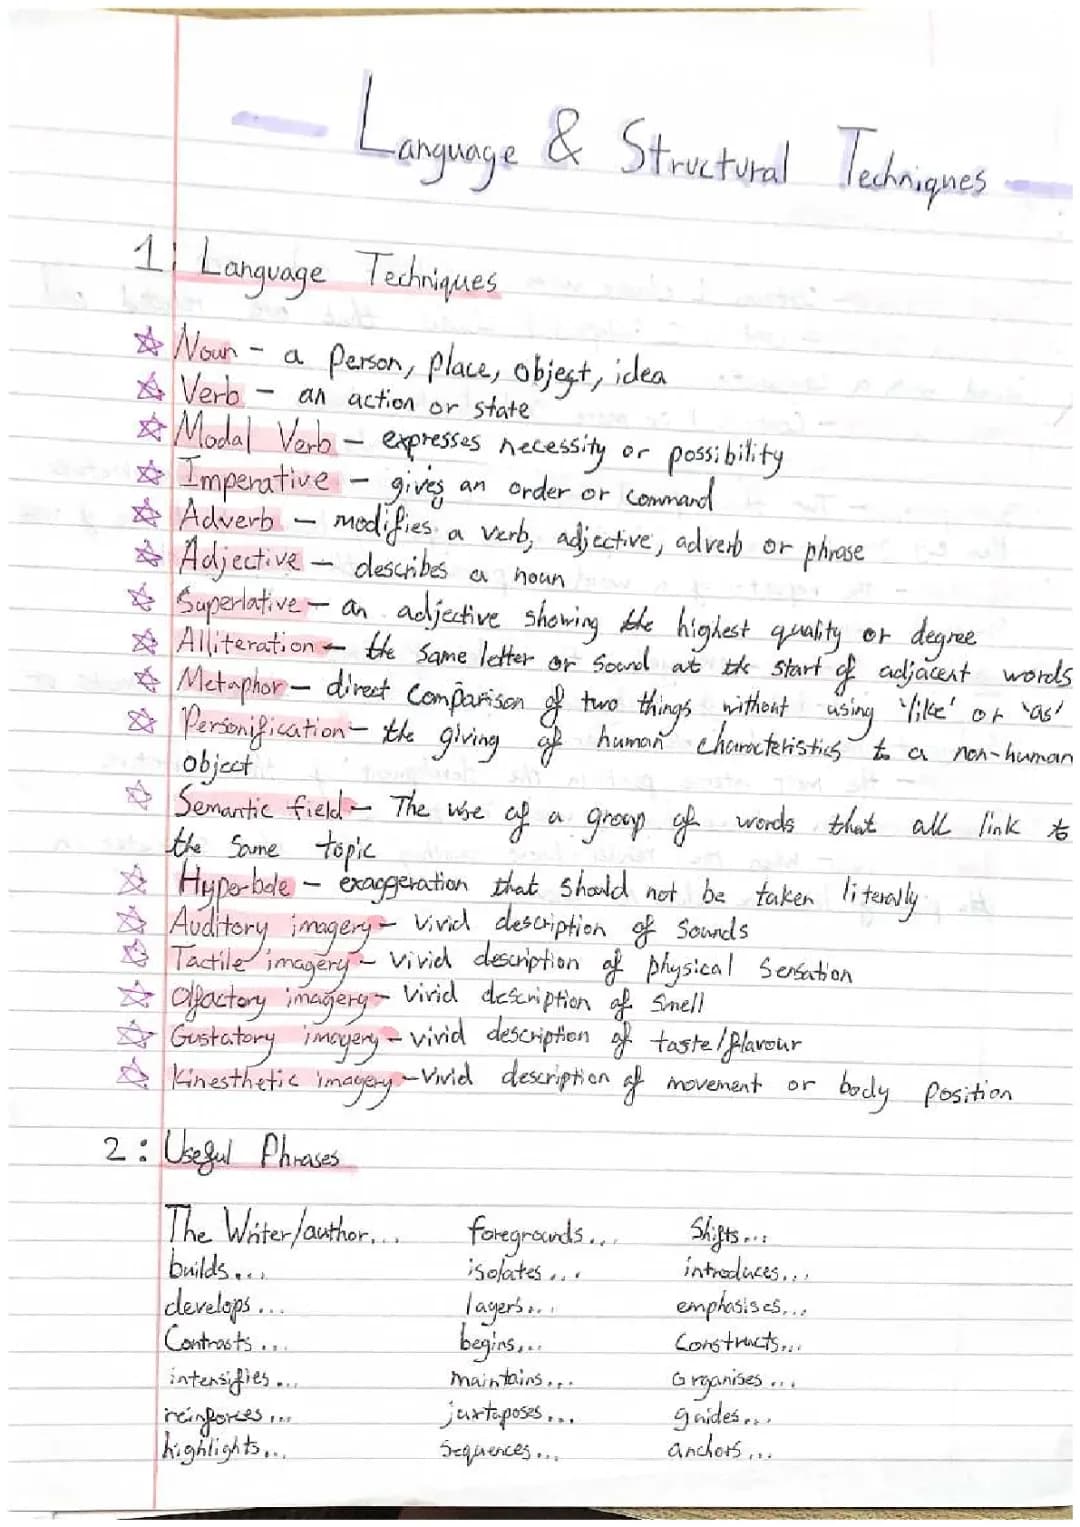 Language & Structural Techniques
1: Language Techniques
Noun - a person, place, object, idea
Verb - an action or state
Modal Verb - expresses necessity or possibility
Imperative - gives an order or command
Adverb - modifies a verb, adjective, adverb or phrase
Adjective - describes a noun
Superlative - an adjective showing the highest quality or degree
Alliteration - the same letter or sound at the start of adjacent words
Metaphor - direct comparison of two things without using 'like' or 'as'
Personification - the giving of human characteristics to a non-human
object
Semantic field - The use of a group of words that all link to
the same topic
Hyperbole - exaggeration that should not be taken literally
Auditory imagery - vivid description of sounds
Tactile imagery - vivid description of physical sensation
Olfactory imagery - vivid description of smell
Gustatory imagery - vivid description of taste/flavour
Kinesthetic imagery - vivid description of movement or body position
2: Useful Phrases
The Writer/author... foregrounds... Shifts...
builds... isolates... introduces...
develops... layers... emphasises...
Contrasts... begins... Constructs...
intensifies... maintains... organises...
reinforces... juxtaposes... guides...
highlights... sequences... anchors...